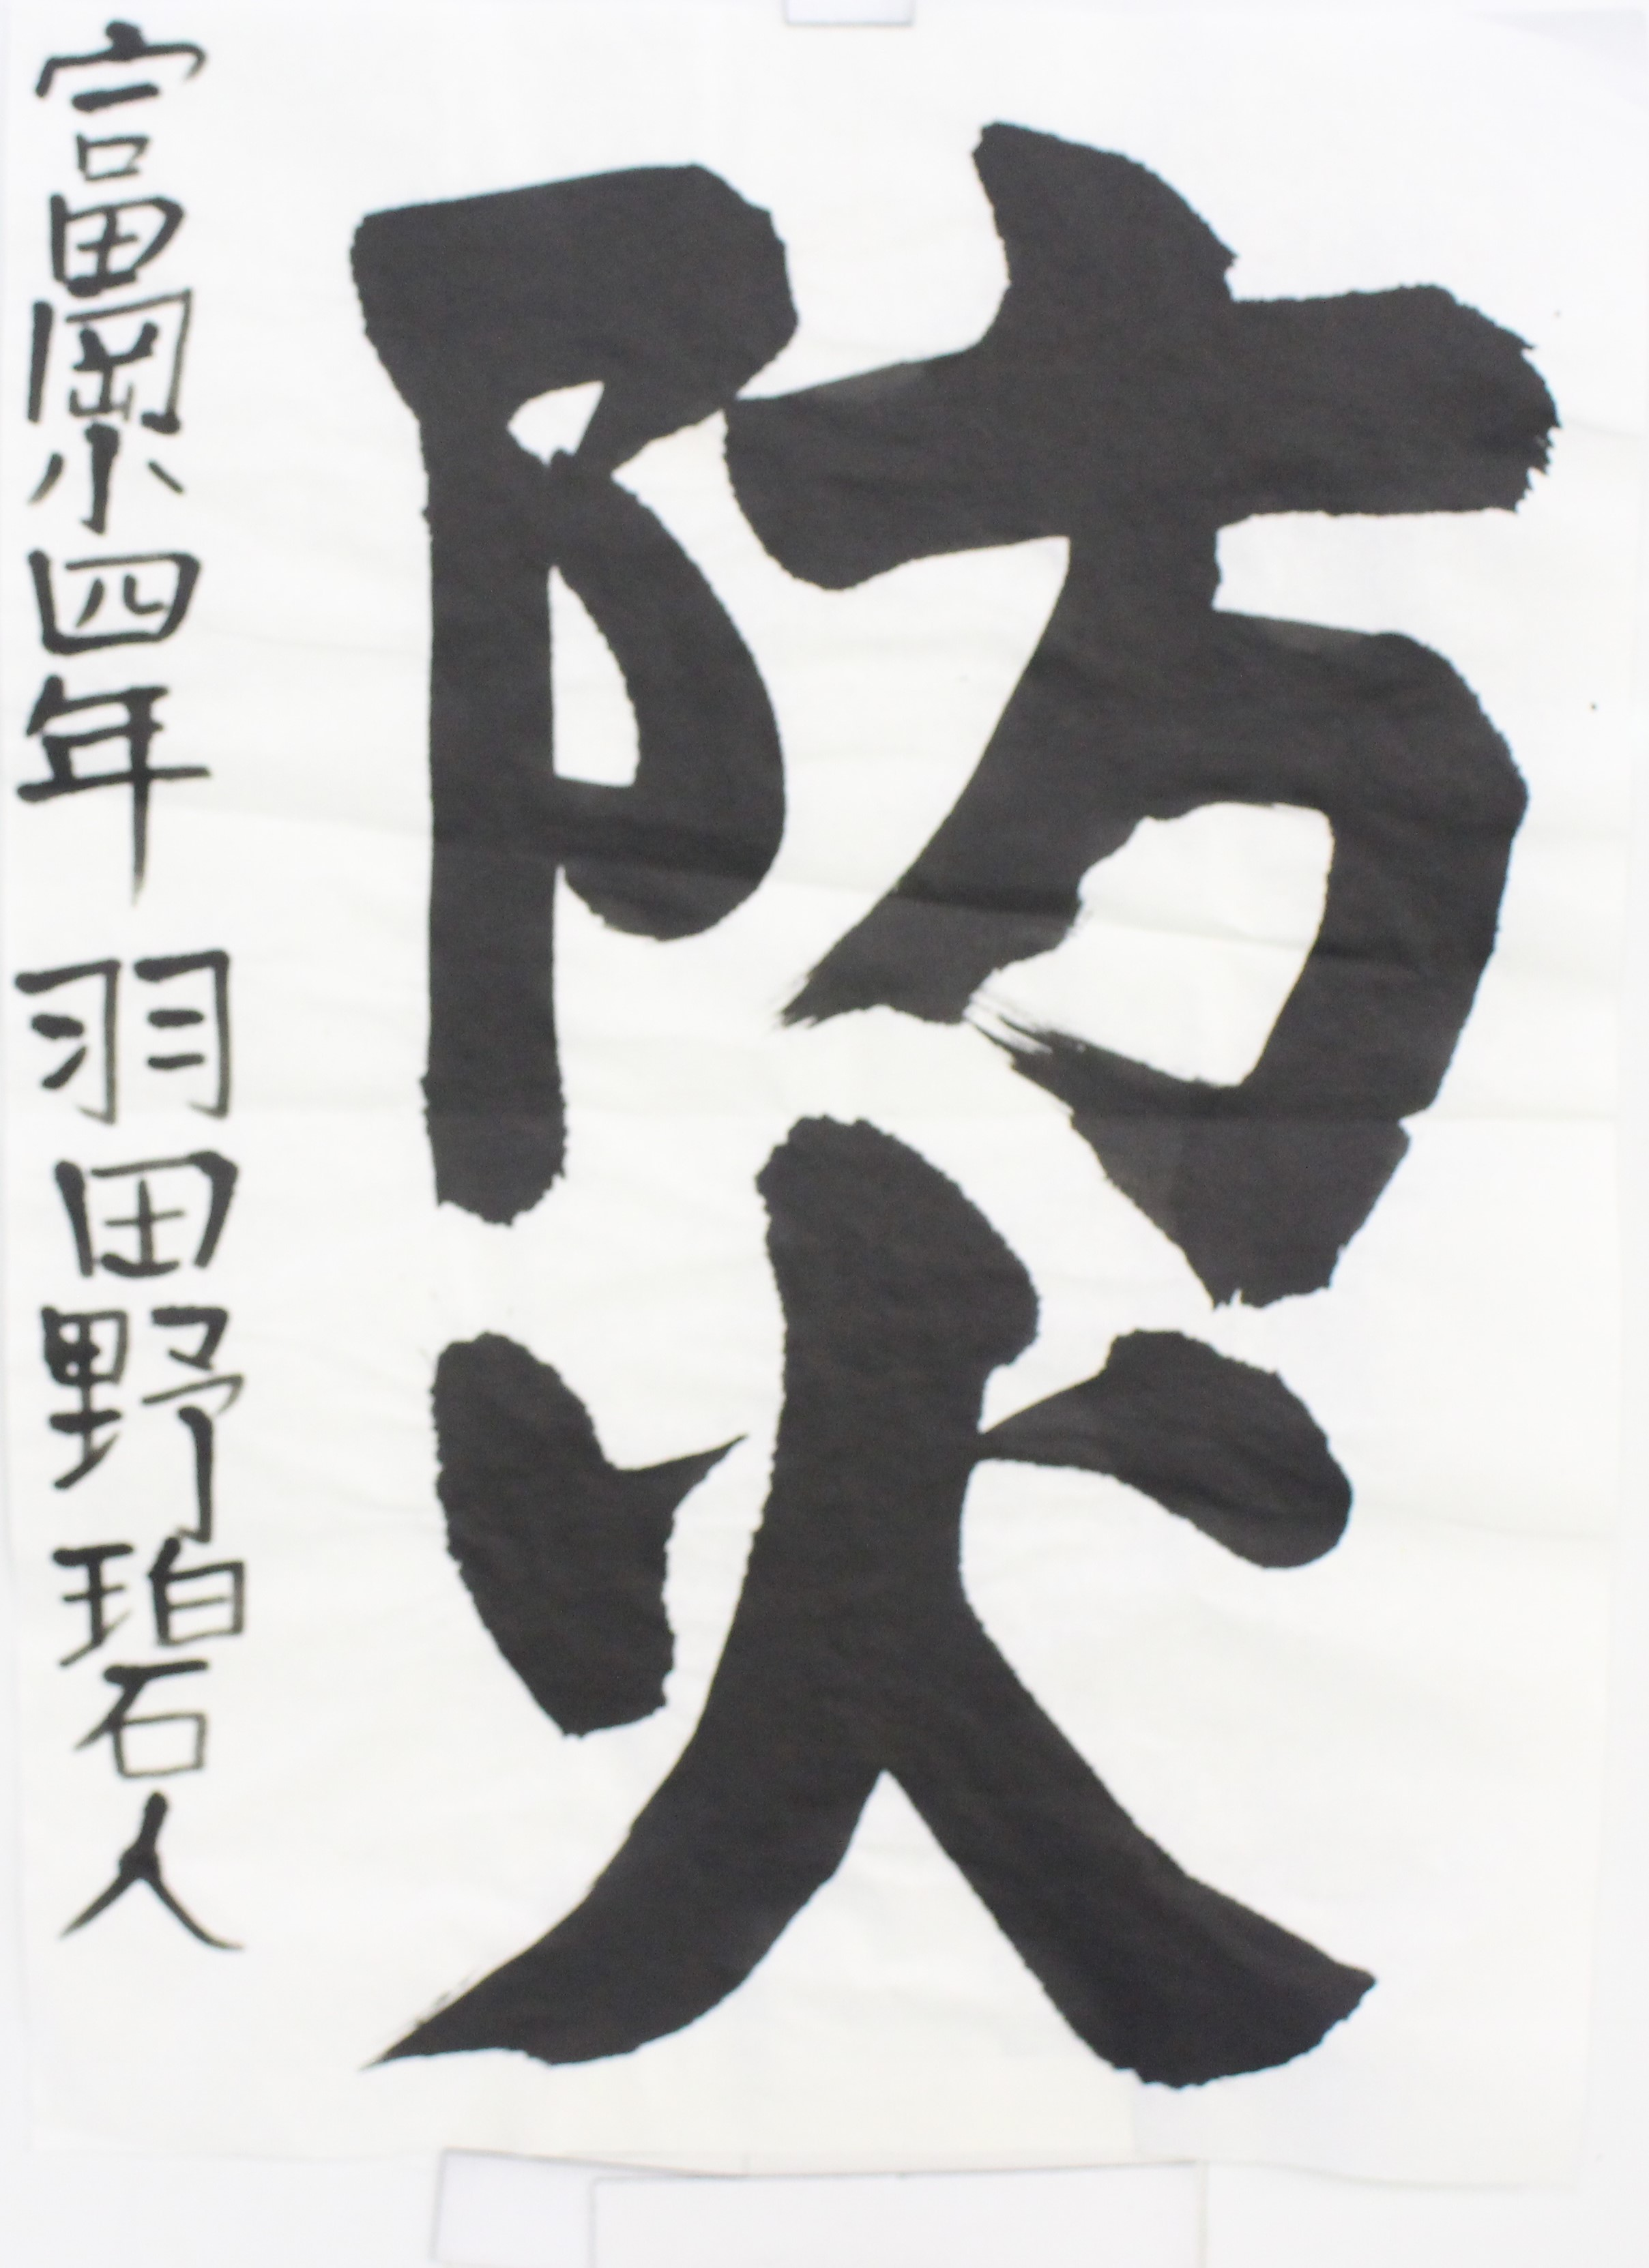 防火
富岡小四年 羽田野珀人